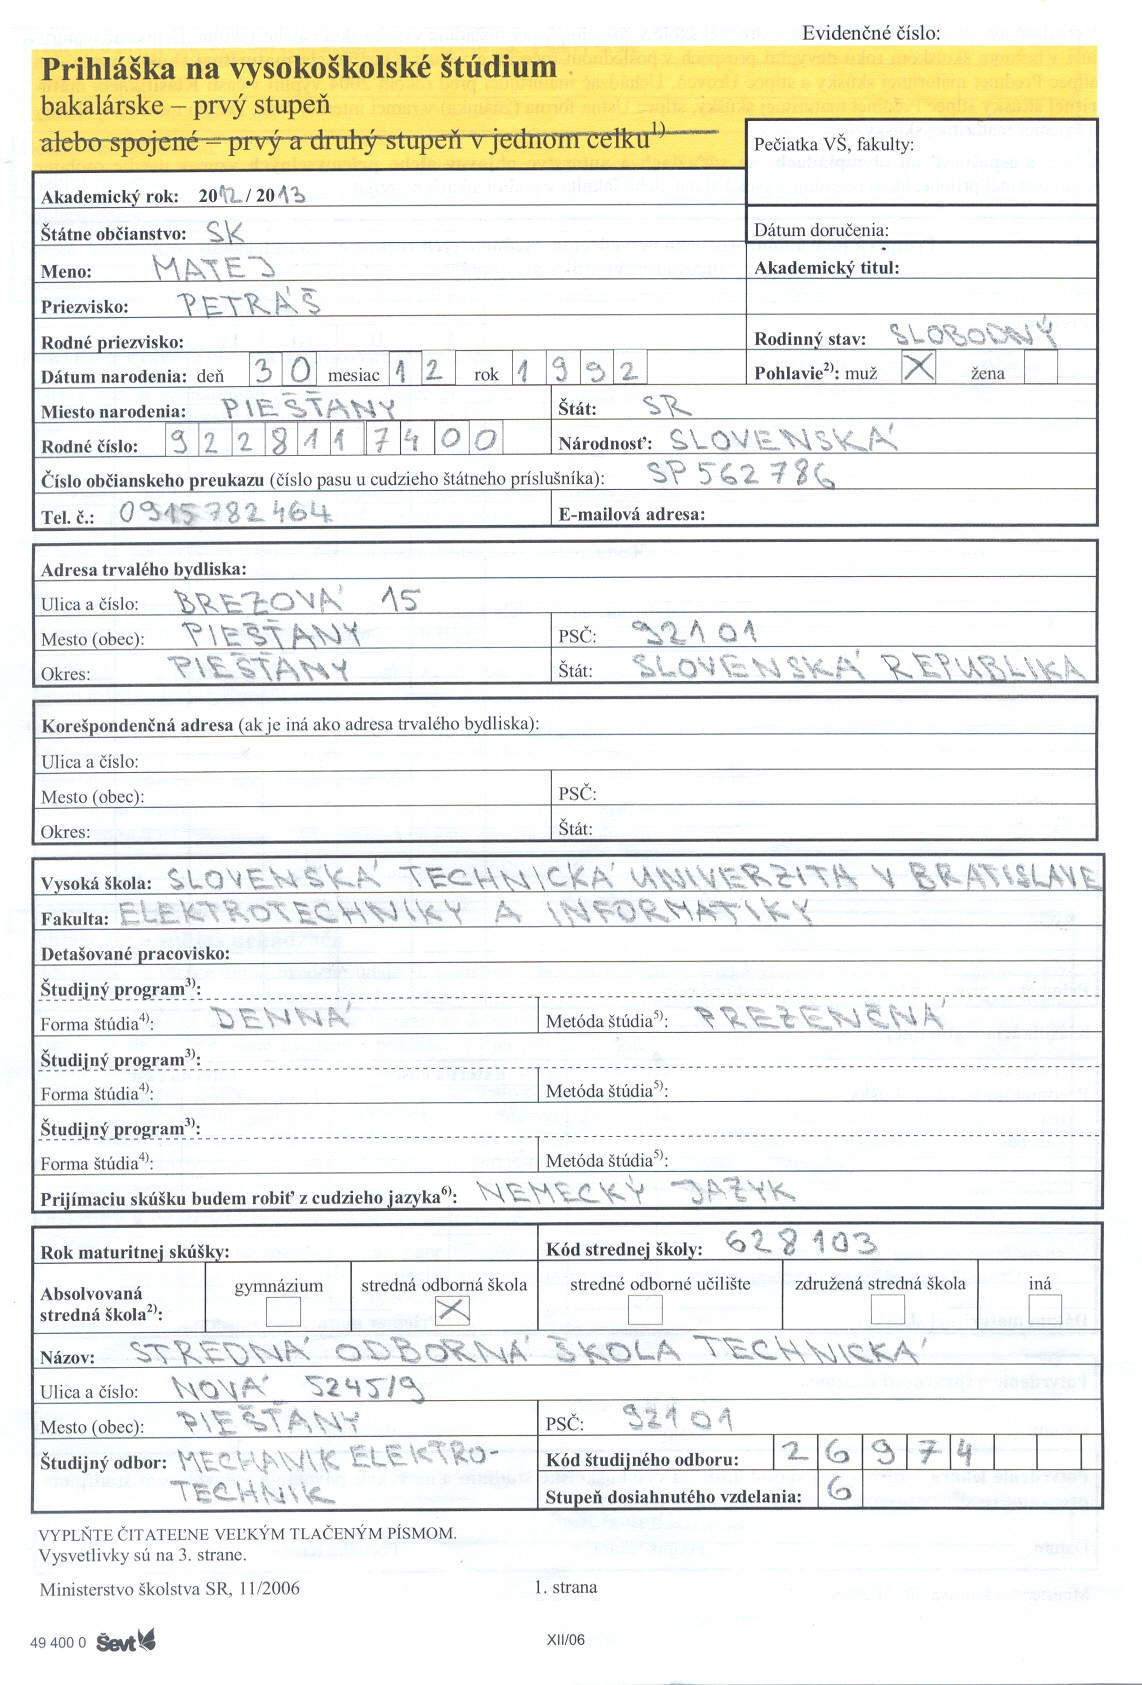 Evidenčné číslo:
Prihláška na vysokoškolské štúdium
bakalárske – prvý stupeň
alebo spojené – prvý a druhý stupeň v jednom celku1)
Pečiatka VŠ, fakulty:
Akademický rok: 2012/2013
Štátne občianstvo: SK
Dátum doručenia:
Meno: MATEJ
Akademický titul:
Priezvisko: PETRÁŠ
Rodné priezvisko:
Rodinný stav: SLOBODNÝ
Dátum narodenia: deň 30 mesiac 12 rok 1992
Pohlavie2): muž X žena
Miesto narodenia: PIEŠŤANY
Štát: SR
Rodné číslo: 9228117400
Národnosť: SLOVENSKÁ
Číslo občianskeho preukazu (číslo pasu u cudzieho štátneho príslušníka): SP562786
Tel. č.: 0915782464
E-mailová adresa:
Adresa trvalého bydliska:
Ulica a číslo: BREZOVÁ 15
Mesto (obec): PIEŠŤANY
PSČ: 92101
Okres: PIEŠŤANY
Štát: SLOVENSKÁ REPUBLIKA
Korešpondenčná adresa (ak je iná ako adresa trvalého bydliska):
Ulica a číslo:
Mesto (obec):
PSČ:
Okres:
Štát:
Vysoká škola: SLOVENSKÁ TECHNICKÁ UNIVERZITA V BRATISLAVE
Fakulta: ELEKTROTECHNIKY A INFORMATIKY
Detašované pracovisko:
Študijný program3):
Forma štúdia4): DENNÁ
Metóda štúdia5): PREZENČNÁ
Študijný program3):
Forma štúdia4):
Metóda štúdia5):
Študijný program3):
Forma štúdia4):
Metóda štúdia5):
Prijímaciu skúšku budem robiť z cudzieho jazyka6): NEMECKÝ JAZYK
Rok maturitnej skúšky:
Kód strednej školy: 628103
Absolvovaná stredná škola2):
gymnázium
stredná odborná škola X
stredné odborné učilište
združená stredná škola
iná
Názov: STREDNÁ ODBORNÁ ŠKOLA TECHNICKÁ
Ulica a číslo: NOVÁ 5245/9
Mesto (obec): PIEŠŤANY
PSČ: 92101
Študijný odbor: MECHANIK ELEKTRO-
TECHNIK
Kód študijného odboru: 26974
Stupeň dosiahnutého vzdelania: 6
VYPLŇTE ČITATEĽNE VEĽKÝM TLAČENÝM PÍSMOM.
Vysvetlivky sú na 3. strane.
Ministerstvo školstva SR, 11/2006
1. strana
49 400 0 Ševt
XII/06